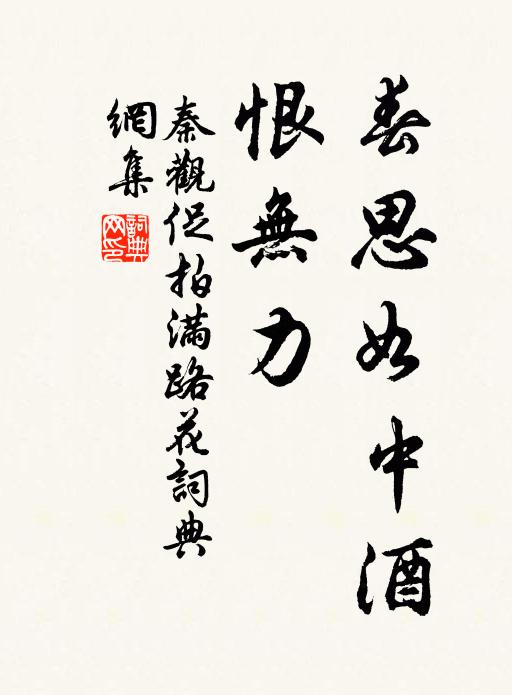 春思如中酒
恨無力
秦觀促拍满路花詞典
網集
詞典網印